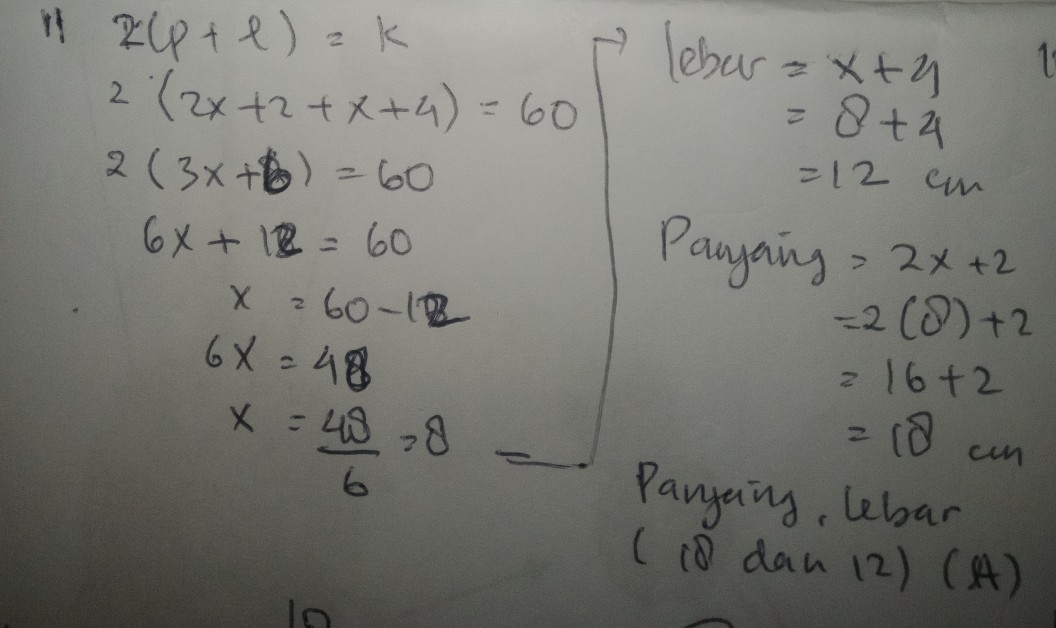 11 2(p + l) = k
2 (2x+2 + x+4) = 60
2 (3x+6) = 60
6x + 12 = 60
x = 60-12
6x = 48
x = 48/6 = 8
lebar = x+4
= 8+4
=12 cm
Panjang = 2x +2
=2(8)+2
= 16+2
= 18 cm
Panjang, lebar
( 18 dan 12) (A)
10